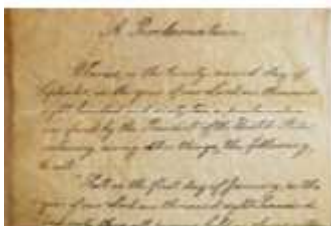 A Proclamation.
Whereas, on the twenty second day of
September, in the year of our Lord one thousand
eight hundred and sixty two, a proclamation
was issued by the President of the United States,
containing, among other things, the following,
to wit:
"That on the first day of January, in the
year of our Lord one thousand eight hundred